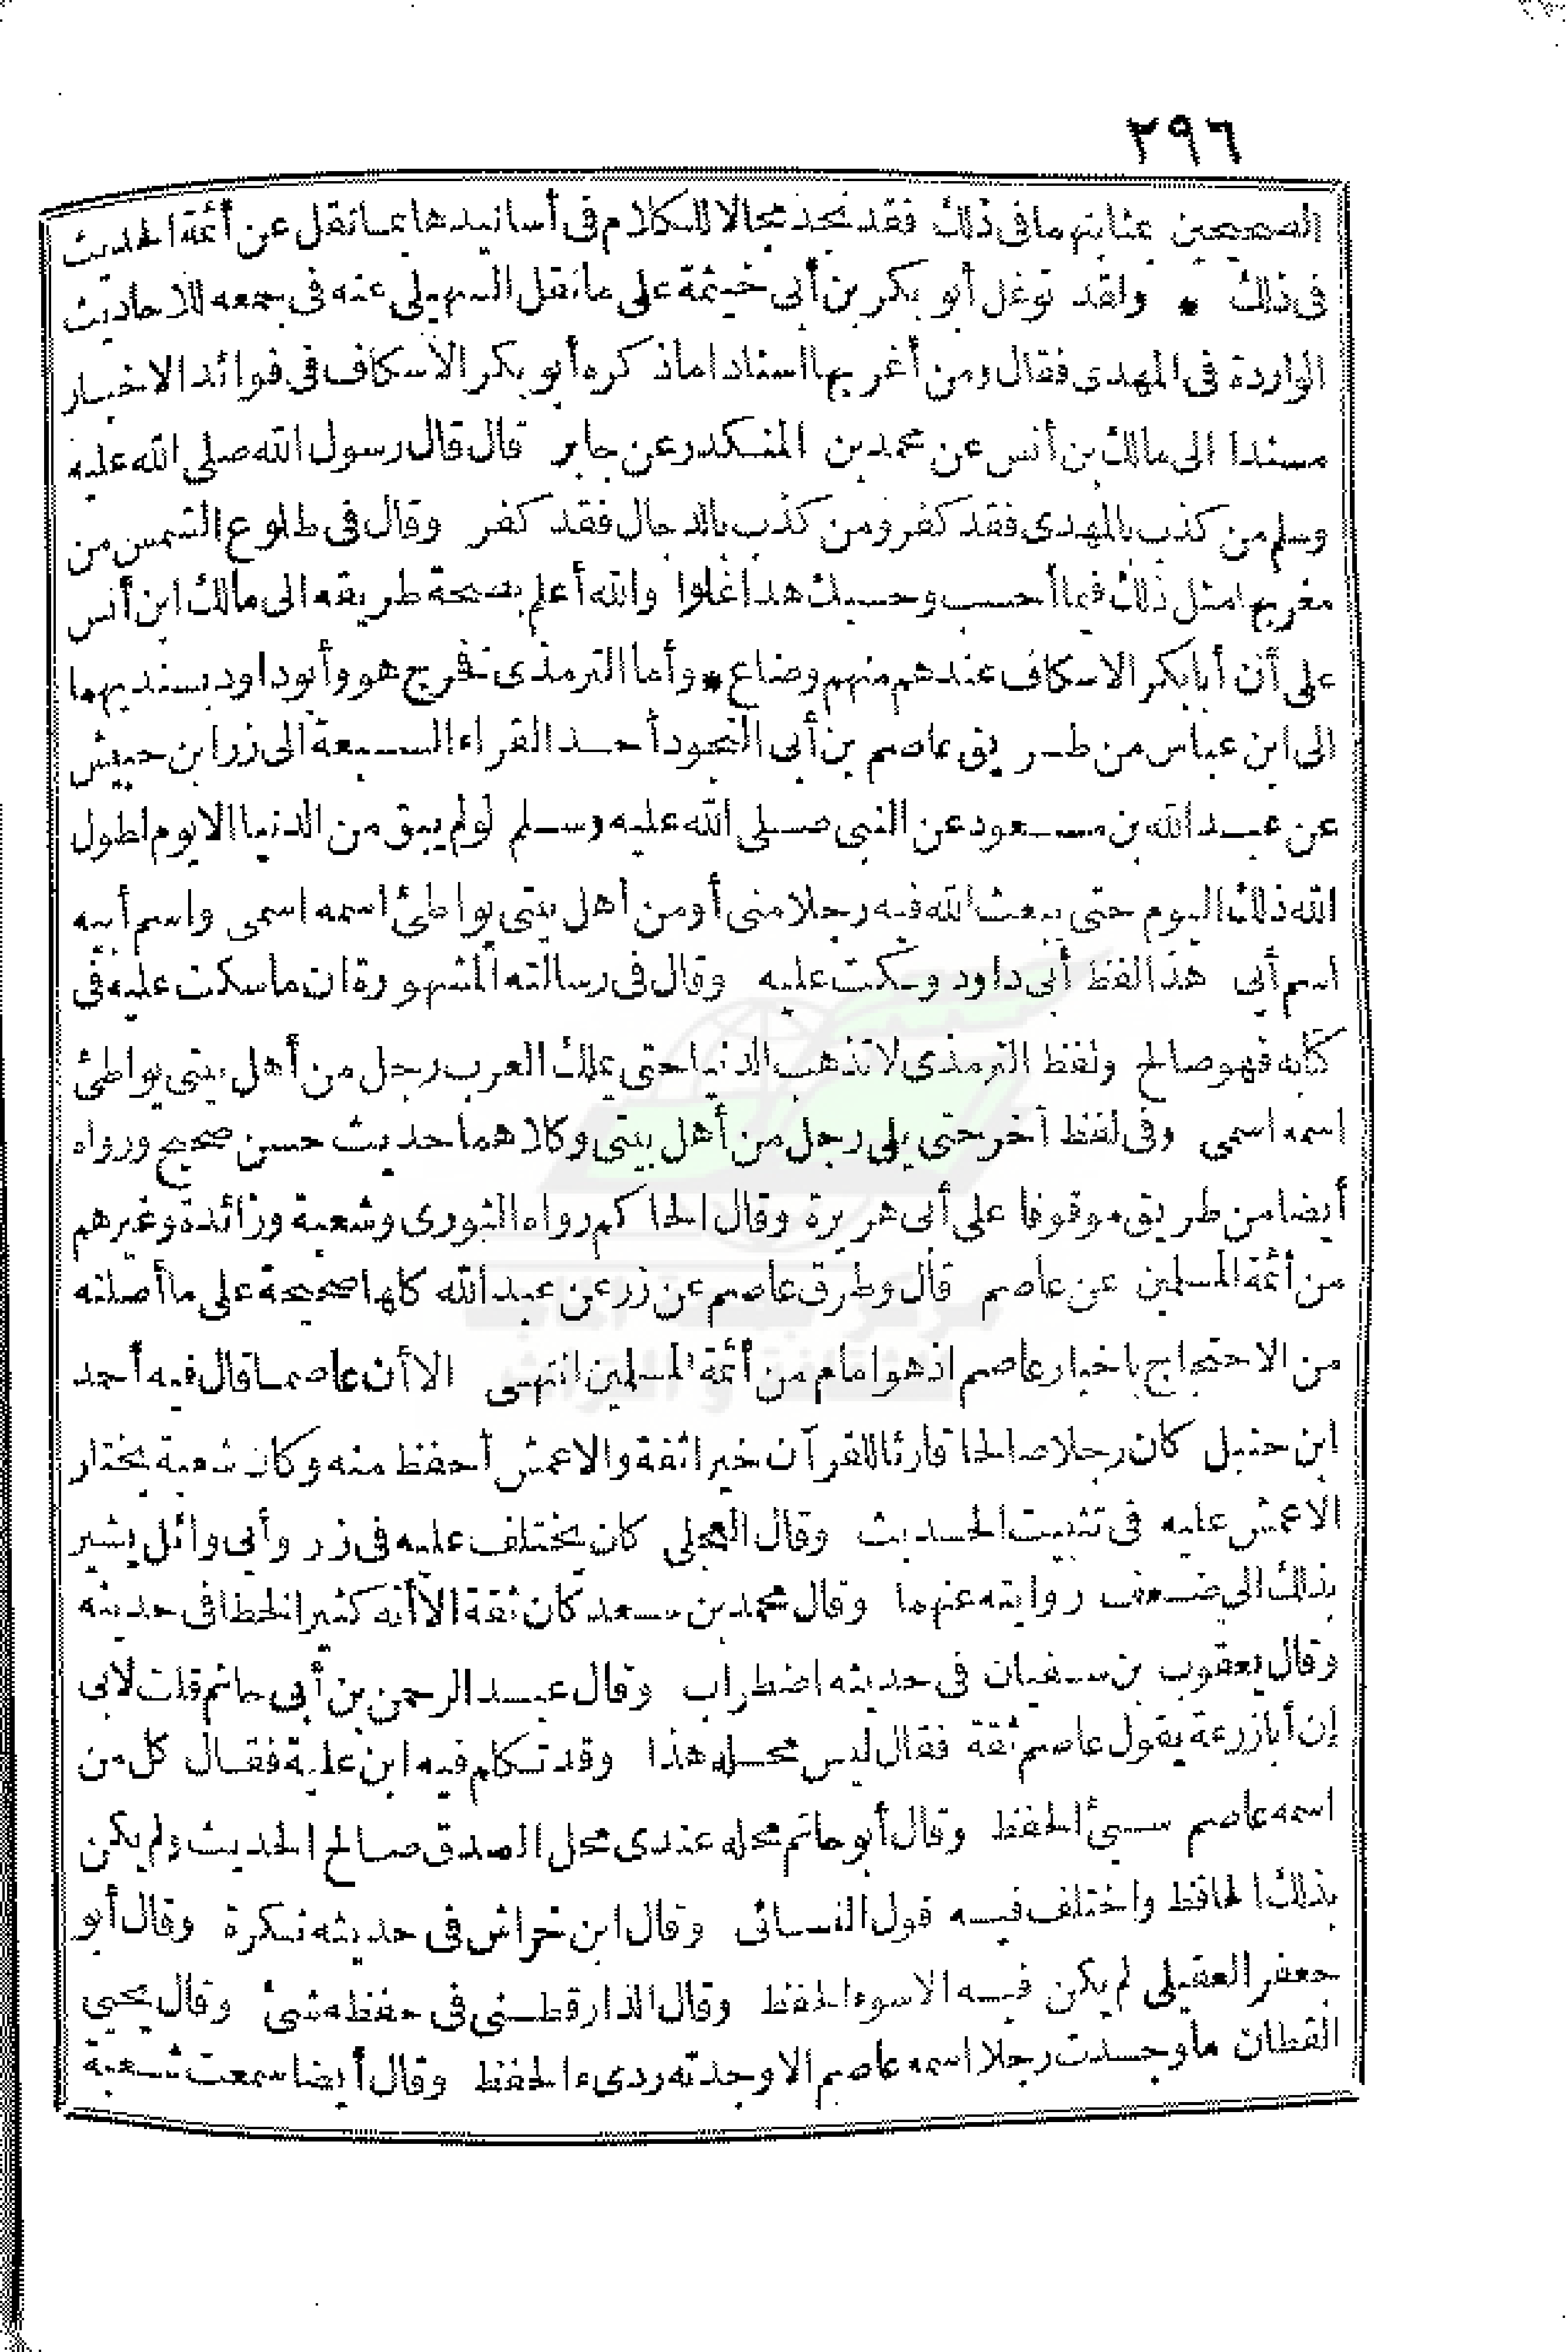 ٢٩٦
الصحيحين بمثابتهما فى ذلك فقد نجد مجالا للكلام فى أسانيدها بما نقل عن أئمة الحديث
فى ذلك * ولقد توغل أبو بكر بن أبى خيثمة على ما نقل السهيلى عنه فى جمعه للاحاديث
الواردة فى المهدى فقال ومن أغربها اسنادا ما ذكره أبو بكر الاسكاف فى فوائد الاخبار
مسندا الى مالك بن أنس عن محمد بن المنكدر عن جابر قال قال رسول الله صلى الله عليه
وسلم من كذب بالمهدى فقد كفر ومن كذب بالدجال فقد كفر وقال فى طلوع الشمس من
مغربها مثل ذلك فيما أحسب وحسبك هذا غلوا والله أعلم بصحة طريقه الى مالك ابن أنس
على أن أبا بكر الاسكاف عندهم متهم وضاع * وأما الترمذى فخرج هو وأبو داود بسنديهما
الى ابن عباس من طريق عاصم بن أبى النجود أحد القراء السبعة الى زر ابن حبيش
عن عبد الله بن مسعود عن النبى صلى الله عليه وسلم لو لم يبق من الدنيا الا يوم لطول
الله ذلك اليوم حتى يبعث الله فيه رجلا منى أو من أهل بيتى يواطئ اسمه اسمى واسم أبيه
اسم أبى هذا لفظ أبى داود وسكت عليه وقال فى رسالته المشهورة ان ما سكت عليه فى
كتابه فهو صالح ولفظ الترمذى لا تذهب الدنيا حتى يملك العرب رجل من أهل بيتى يواطئ
اسمه اسمى وفى لفظ آخر حتى يلى رجل من أهل بيتى وكلاهما حديث حسن صحيح ورواه
أيضا من طريق موقوفا على أبى هريرة وقال الحاكم رواه الثورى وشعبة وزائدة وغيرهم
من أئمة المسلمين عن عاصم قال وطرق عاصم عن زر عن عبد الله كلها صحيحة على ما أصلته
من الاحتجاج باخبار عاصم اذ هو امام من أئمة المسلمين انتهى الا أن عاصما قال فيه أحمد
ابن حنبل كان رجلا صالحا قارئا للقرآن خيرا ثقة والاعمش أحفظ منه وكان شعبة يختار
الاعمش عليه فى تثبيت الحديث وقال العجلى كان يختلف عليه فى زر وأبى وائل يشير
بذلك الى ضعف روايته عنهما وقال محمد بن سعد كان ثقة الا أنه كثير الخطا فى حديثه
وقال يعقوب بن سفيان فى حديثه اضطراب وقال عبد الرحمن بن أبى حاتم قلت لابى
إن أبا زرعة يقول عاصم ثقة فقال ليس محله هذا وقد تكلم فيه ابن علية فقال كل من
اسمه عاصم سيئ الحفظ وقال أبو حاتم محله عندى محل الصدق صالح الحديث ولم يكن
بذلك الحافظ واختلف فيه قول النسائى وقال ابن خراش فى حديثه نكرة وقال أبو
جعفر العقيلى لم يكن فيه الا سوء الحفظ وقال الدارقطنى فى حفظه شئ وقال يحيى
القطان ما وجدت رجلا اسمه عاصم الا وجدته ردىء الحفظ وقال أيضا سمعت شعبة